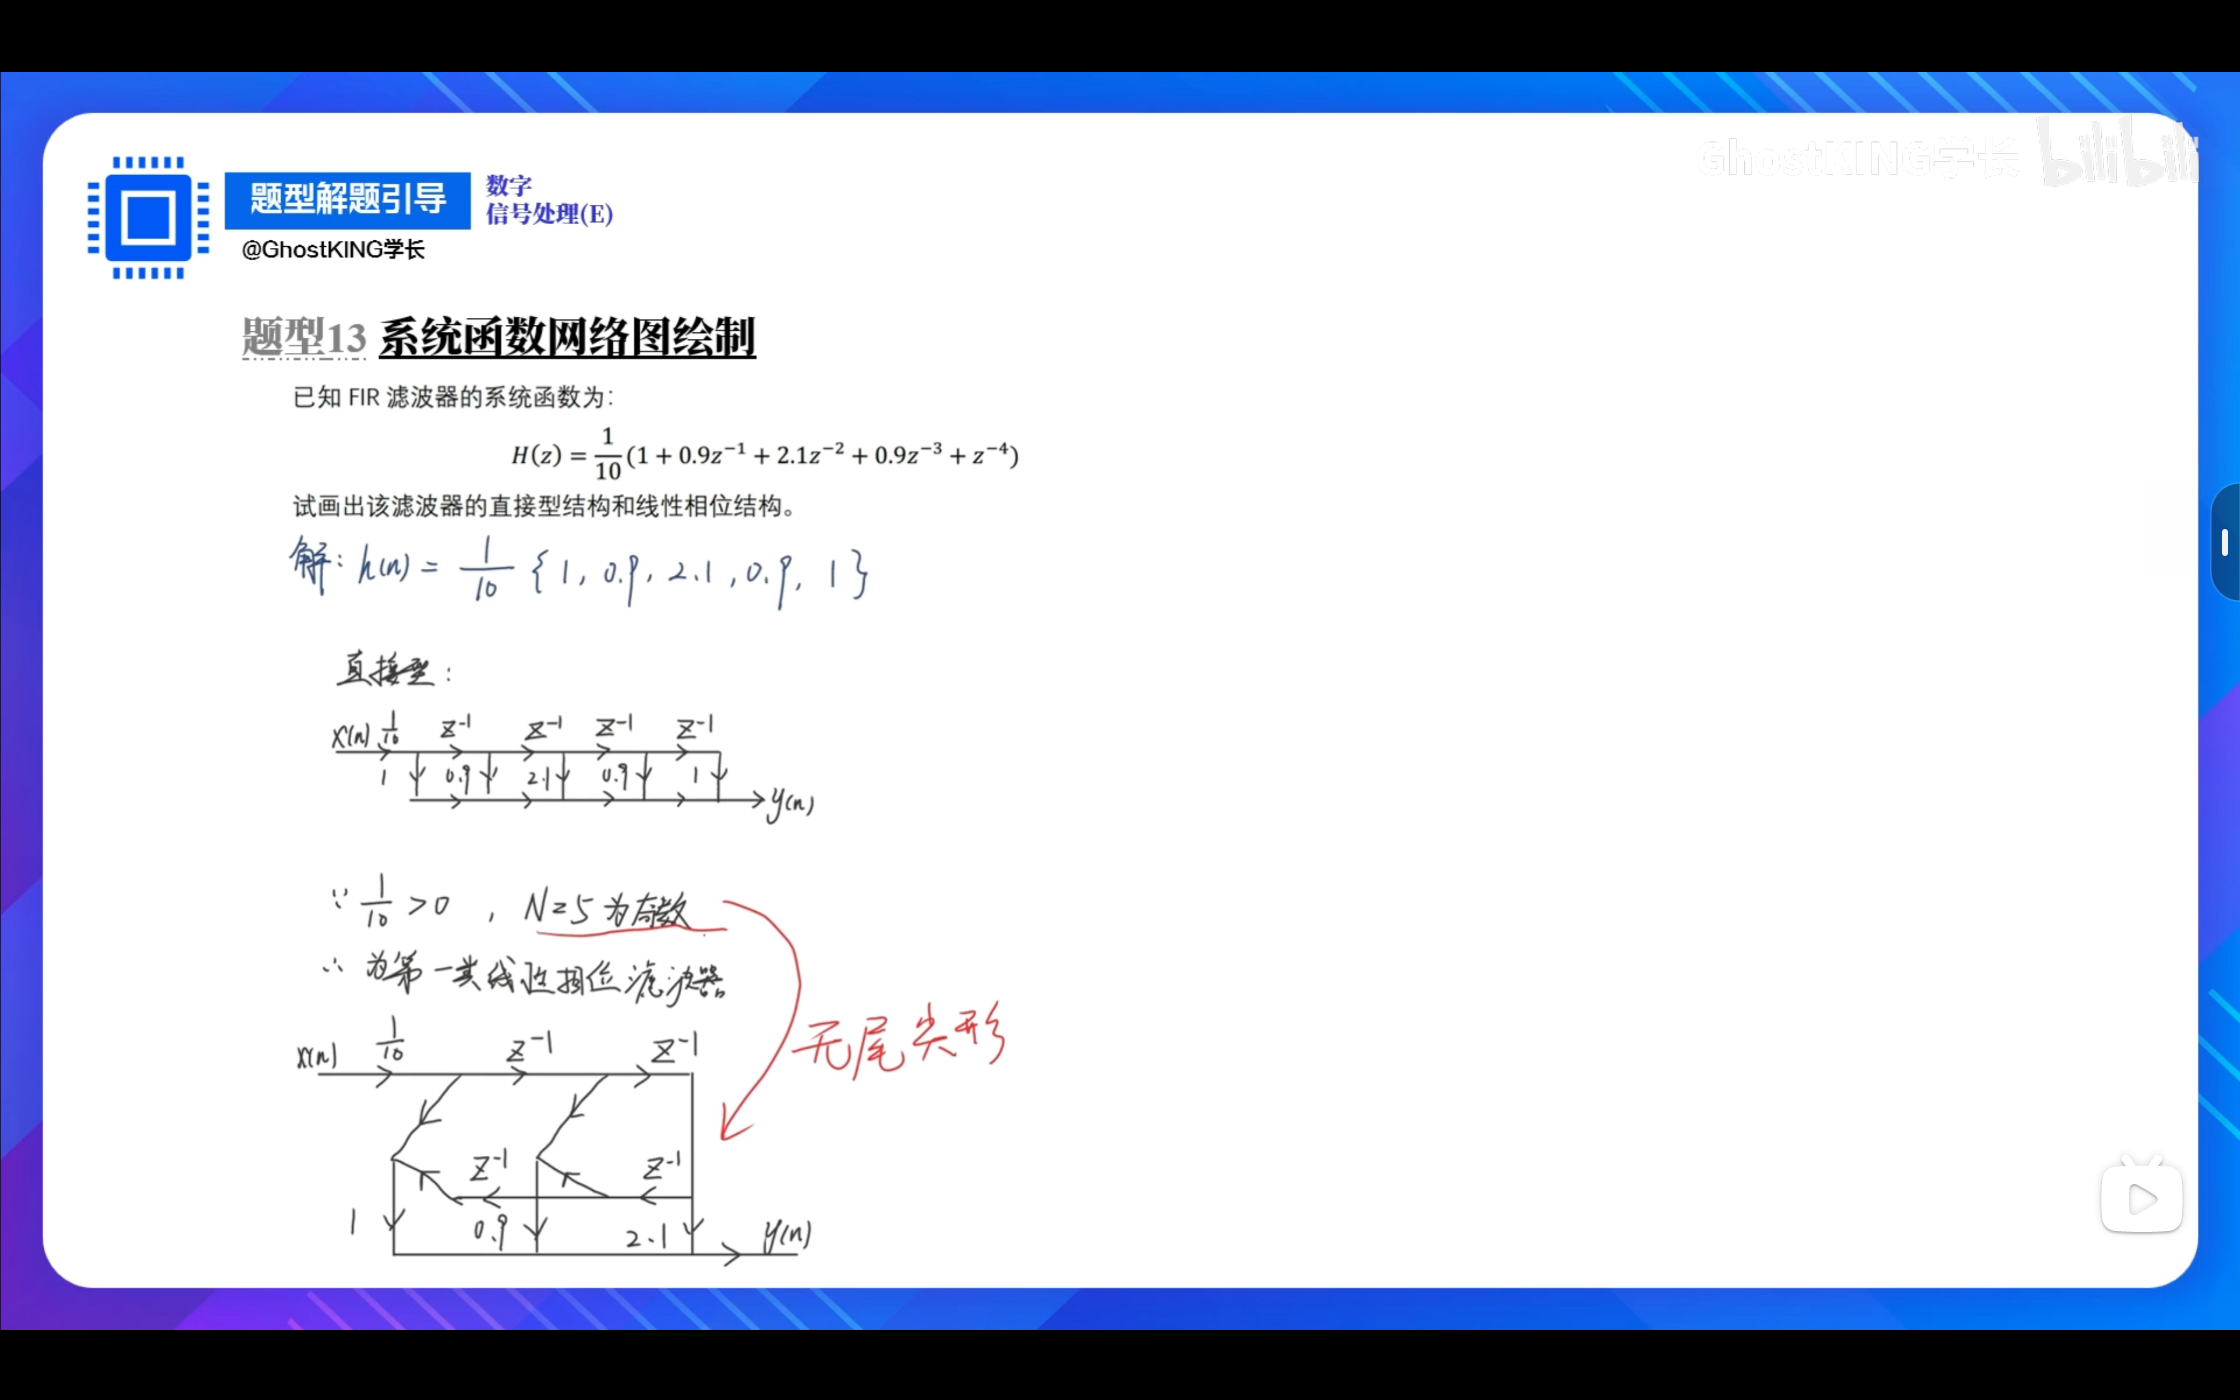 GhostKING学长 bilibili
题型解题引导
数字
信号处理(E)
@GhostKING学长
题型13 系统函数网络图绘制
已知 FIR 滤波器的系统函数为：
H(z) = 1/10 (1 + 0.9z⁻¹ + 2.1z⁻² + 0.9z⁻³ + z⁻⁴)
试画出该滤波器的直接型结构和线性相位结构。
解: h(n) = 1/10 {1, 0.9, 2.1, 0.9, 1}
直接型:
x(n) 1/10 z⁻¹ z⁻¹ z⁻¹ z⁻¹
1 0.9 2.1 0.9 1
y(n)
∵ 1/10 > 0, N=5 为奇数
∴ 为第一类线性相位滤波器
无尾尖形
x(n) 1/10 z⁻¹ z⁻¹
z⁻¹ z⁻¹
1 0.9 2.1 y(n)